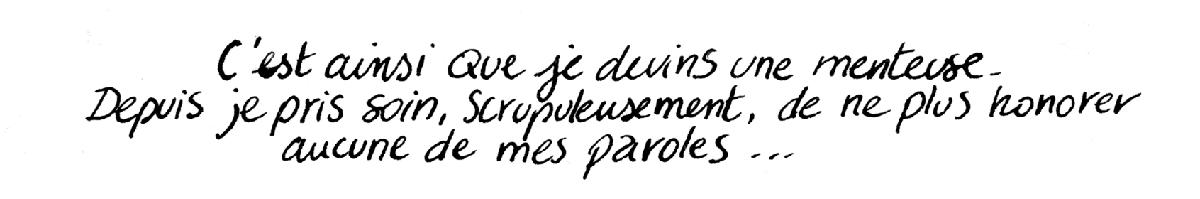 C'est ainsi que je devins une menteuse.
Depuis je pris soin, scrupuleusement, de ne plus honorer
aucune de mes paroles ...